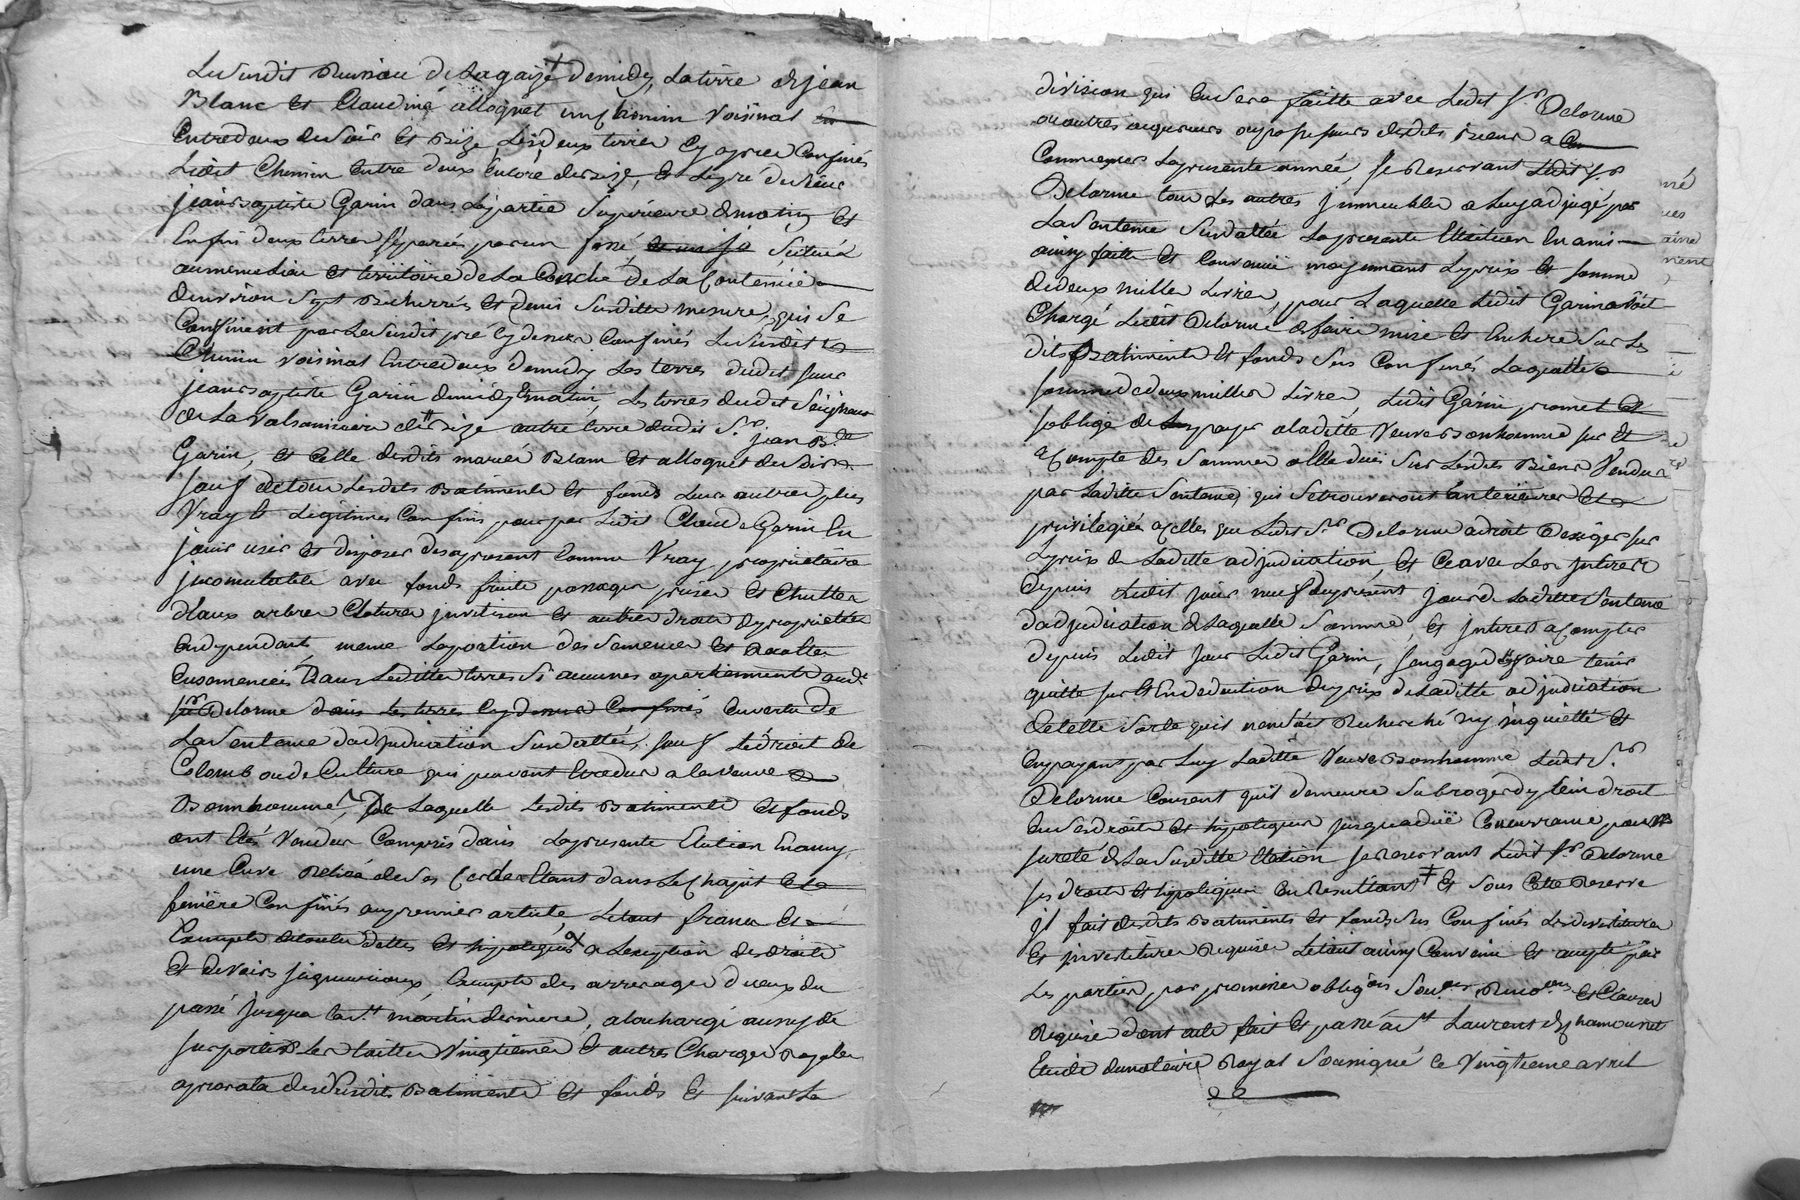 Le susdit Ruisseau de Lagaize + de midy, La terre de jean
Blanc et Claudine alloquet un chemin voisinal
Entredeux de soir et Bize, Lesdeux terres Cy apres Confinés
Ledit Chemin Entre deux Encore de bize, et Le pré du Sieur
jean Baptiste Garin dans La partie Superieure de matin et
Enfin deux terres Separées par un fossé, Scituées
au meme Lieu et territoire de La Conche de La Contenüe
denviron Sept Bicherrées et demis Susditte mesure, qui se
Confinent par Le Susdit pré Cy dessus Confinés Le Susdit
Chemin voisinal Entredeux de midy Les terres dudit Sieur
jean Baptiste Garin de midy Ematin, Les terres dudit Seigneur
de La Valsonniere de bize autre terre dudit S.r jean B.te
Garin, et Celle desdits mariés Blanc et alloquet de soir
Sauf de tous Lesdits Batiments et fonds Leurs autres plus
Vray et Legitimes Confins pour par Ledit Claude Garin En
jouir user et disposer des apresent Comme Vray proprietaire
jncomutable avec fonds fruits passages prises et Chuttes
dEaux arbres Clotures jnvetison et autres droits de proprietés
En dependant, meme La portion des Semences et Recoltes
Ensemencées Dans Lesdittes terres Si aucunes apartiennent aud.t
S.r Delorme dans Les terres Cy dessus Confinés En vertu de
La Sentence dadjudication Susdattée, sauf Le droit de
Colomb ou de Culture qui peuvent Etre dus a la veuve
Bonnhomme, De Laquelle Lesdits Batiments et fonds
ont Etés Vendus Compris dans La presente Election Enamy,
une Cuve Reliée de Ses Cercles Etant dans Le Chapit et
feniere Confinés au premier article, Le tout franc et
Exempte de toutes dettes et hipoteques a Lexeption des droits
Et devoirs seigneuriaux, Exempte des arrerages d'iceux du
passé jusqua la S.t martin derniere, a la charge aussy de
Suporter Les tailles Vingtiemes et autres Charges Royales
aprorata desdSusdits Batiments et fonds et suivant La
division qui En Sera faitte avec Ledit S.r Delorme
ou autres aquereurs ou possesseurs desdits Biens a
Commencer La presente année, Se Reservant Ledit S.r
Delorme tous Les autres jmmeubles a Luy adjugé par
La Sentence Susdattée La presente Election En ami
ainsy faitte et Convenüe moyennant Le prix et Somme
de deux mille Livres, pour Laquelle Ledit Garin avoit
Chargé Ledit Delorme de faire mise et Enchere Sur Les
dits Batiments et fonds Sus Confinés Laquelle
Somme de deux milles Livres, Ledit Garin promet et
Soblige de payer a laditte Veuve Bonhomme sur Et
aCompte des Sommes a Elle düe Sur Lesdits Biens Vendus
par Laditte Sentence, qui Se trouveront anterieures et
privilegiés a celles que Ledit S.r Delorme a droit Dexiger sur
Le prix de Laditte adjudication, et Ce avec Les jnterets
depuis Ledit jour neuf du present jour de Laditte Sentence
dadjudication de Laquelle Somme, et jnterets a Compter
depuis Ledit jour Ledit Garin, Sengage de faire tenir
quitte Sur et En deduction du prix de Laditte adjudication
de telle Sorte quil nen soit Recherché ny jnquietté Et
En payant par Luy Laditte Veuve Bonhomme Ledit S.r
Delorme Consent quil demeure Subroger de plein droit
En Ses droits et hipoteques jusqua düe Concurrance pour
Sureté de La Susditte Election Se Reservant Ledit S.r Delorme
Ses droits et hipoteques En Resultant Et Sous Cette Reserve
jl fait desdits Batiments et fonds Sus Confinés Les devestitures
Et jnvestitures Requises Le tout ainsy Convenu Et accepté par
Les parties par promesses oblig.ons Sou.ons Reno.ons et Clauses
Requises dont acte fait Et passé a S.t Laurent de Chamousset
Etude du notaire Royal Soussigné Ce Vingtieme avril